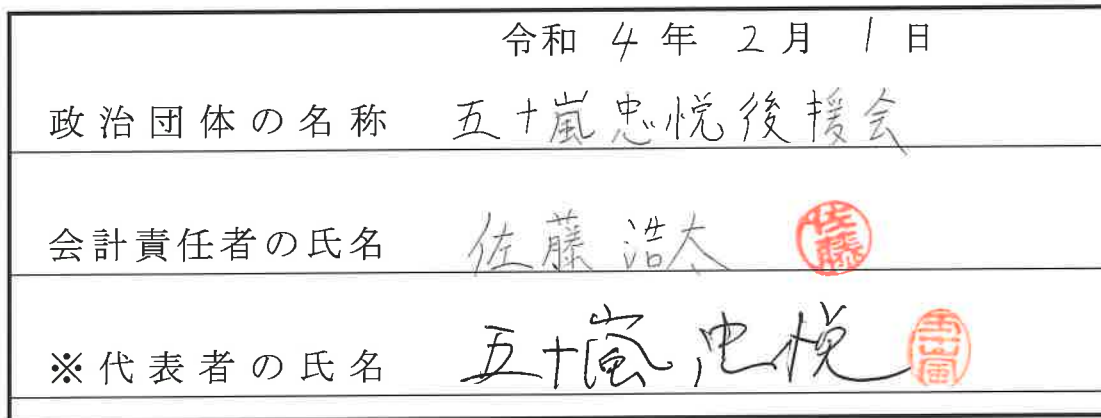 令和 4 年 2 月 1 日
政治団体の名称 五十嵐忠悦後援会
会計責任者の氏名 佐藤浩太 佐藤
※代表者の氏名 五十嵐忠悦 五十嵐